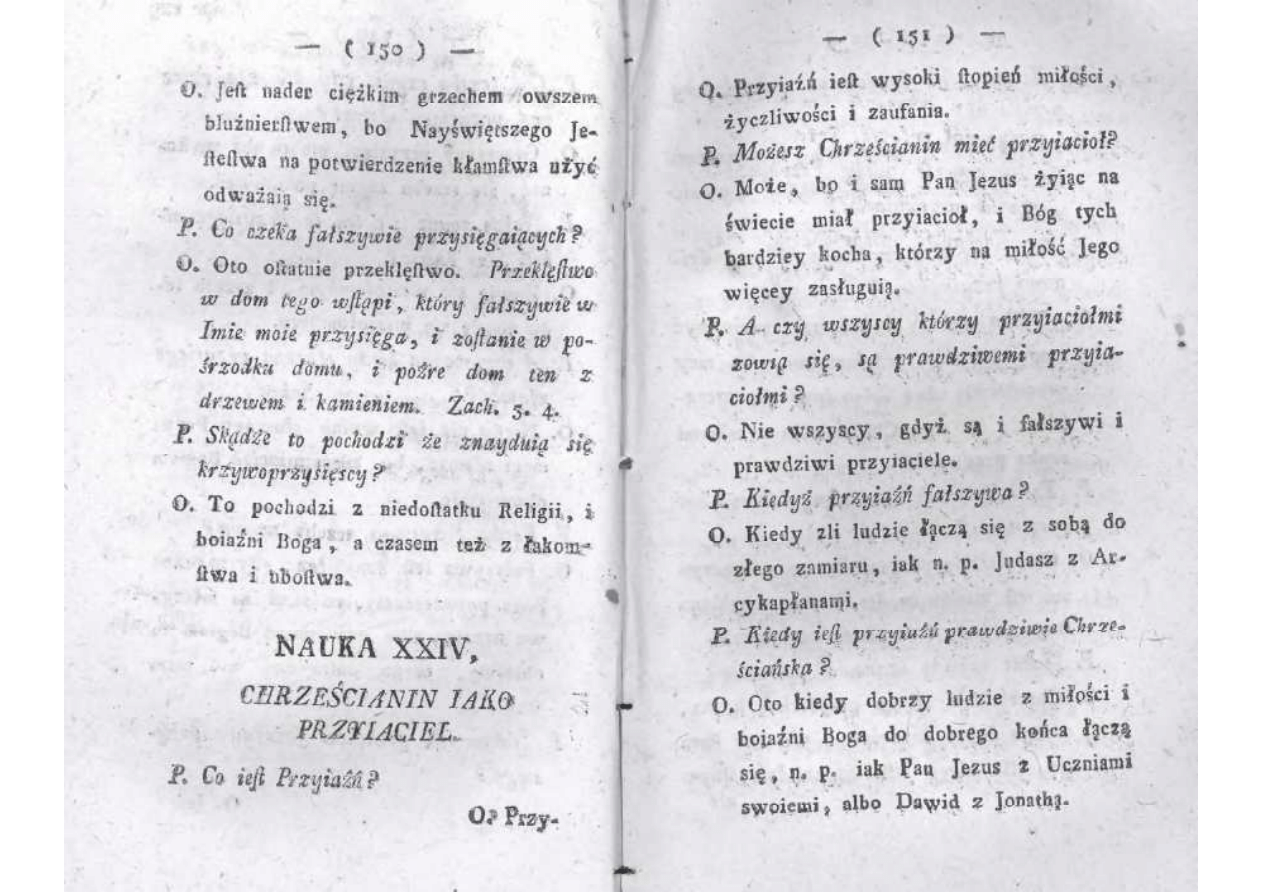 — ( 150 ) —
O. Jeſt nader ciężkim grzechem owszem
bluźnierſtwem, bo Nayświętszego Je-
ſteſtwa na potwierdzenie kłamſtwa użyć
odważaią się.
P. Co czeka fałszywie przysięgaiących?
O. Oto oſtatnie przeklęſtwo. Przeklęſtwo
w dom tego wſtąpi, który fałszywie w
Imie moie przysięga, i zoſtanie w po-
śrzodku domu, i poźre dom ten z
drzewem i kamieniem. Zach. 5. 4.
P. Skądże to pochodzi że znayduią się
krzywoprzysięscy?
O. To pochodzi z niedoſtatku Religii, i
boiaźni Boga, a czasem też z łakom-
ſtwa i uboſtwa.
NAUKA XXIV,
CHRZEŚCIANIN IAKO
PRZYIACIEL.
P. Co ieſt Przyiaźń?
O. Przy-
— ( 151 ) —
O. Przyiaźń ieſt wysoki ſtopień miłości,
życzliwości i zaufania.
P. Możesz Chrześcianin mieć przyiacioł?
O. Może, bo i sam Pan Jezus żyiąc na
świecie miał przyiacioł, i Bóg tych
bardziey kocha, którzy na miłość Jego
więcey zasługuią.
P. A czy wszyscy którzy przyiaciołmi
zowią się, są prawdziwemi przyia-
ciołmi?
O. Nie wszyscy, gdyż są i fałszywi i
prawdziwi przyiaciele.
P. Kiedyż przyiaźń fałszywa?
O. Kiedy zli ludzie łączą się z sobą do
złego zamiaru, iak n. p. Judasz z Ar-
cykapłanami.
P. Kiedy ieſt przyiaźń prawdziwie Chrze-
ściańska?
O. Oto kiedy dobrzy ludzie z miłości i
boiaźni Boga do dobrego końca łączą
się, n. p. iak Pan Jezus z Uczniami
swoiemi, albo Dawid z Jonathą.